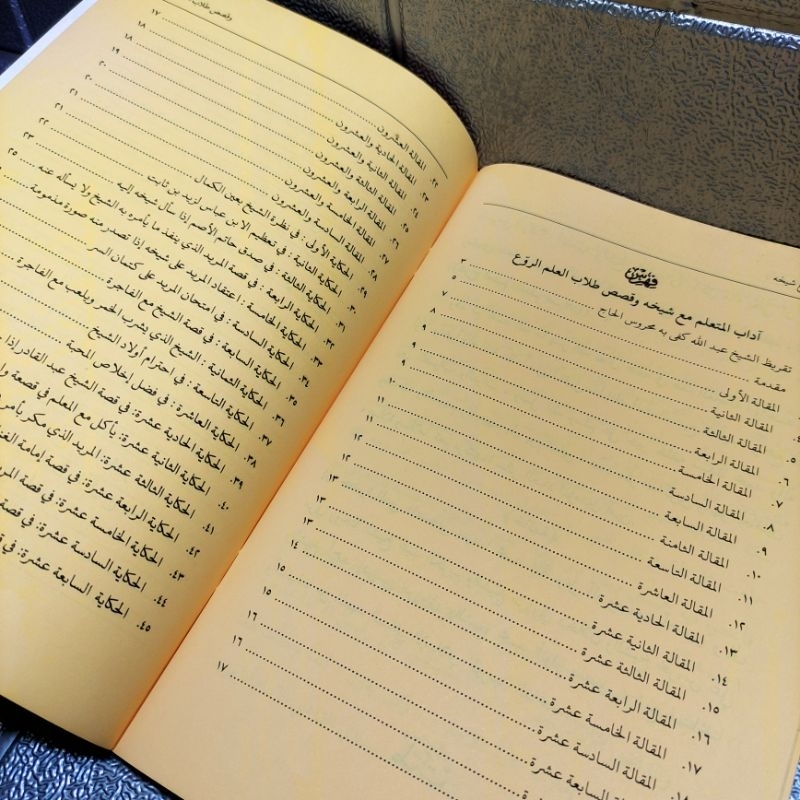 شيخه
فهرس
آداب المتعلم مع شيخه وقصص طلاب العلم الروع
تقريظ الشيخ عبد الله كفى به محروس الحاج ٣
مقدمة ٥
المقالة الأولى ٧
٤. المقالة الثانية ٨
٥. المقالة الثالثة ٩
٦. المقالة الرابعة ٩
٧. المقالة الخامسة ١٠
٨. المقالة السادسة ١١
٩. المقالة السابعة ١١
١٠. المقالة الثامنة ١٢
١١. المقالة التاسعة ١٢
١٢. المقالة العاشرة ١٣
١٣. المقالة الحادية عشرة ١٣
١٤. المقالة الثانية عشرة ١٤
١٥. المقالة الثالثة عشرة ١٥
١٦. المقالة الرابعة عشرة ١٥
١٧. المقالة الخامسة عشرة ١٦
١٨. المقالة السادسة عشرة ١٦
المقالة السابعة عشرة ١٧
وقصص طلاب
المقالة العشرون ١٧
٢٢. المقالة الحادية والعشرون ١٨
٢٣. المقالة الثانية والعشرون ١٨
٢٤. المقالة الثالثة والعشرون ١٩
٢٥. المقالة الرابعة والعشرون ٢٠
٢٦. المقالة الخامسة والعشرون ٢٠
٢٧. المقالة السادسة والعشرون ٢١
٢٨. الحكاية الأولى : في نظرة الشيخ بعين الكمال ٢١
٢٩. الحكاية الثانية : في تعظيم الابن عباس لزيد بن ثابت ٢٢
٣٠. الحكاية الثالثة : في صدق حاتم الأصم إذا سأل شيخه إليه ٢٣
٣١. الحكاية الرابعة : في قصة المريد الذي ينفذ ما يأمره به الشيخ ولا يسأله عنه ٢٥
٣٢. الحكاية الخامسة : اعتقاد المريد على شيخه إذا تصدر منه صورة مذمومة
٣٣. الحكاية السادسة : في امتحان المريد على كتمان السر
٣٤. الحكاية السابعة : في قصة الشيخ مع الفاجرة
٣٥. الحكاية الثمانية : الشيخ الذي يشرب الخمر ويلعب مع الفاجرة
٣٦. الحكاية التاسعة : في احترام اولاد الشيخ
٣٧. الحكاية العاشرة : في فضل إخلاص المحبة
٣٨. الحكاية الحادية عشرة: في قصة الشيخ عبد القادر إذا
٣٩. الحكاية الثانية عشرة: يأكل مع المعلم في قصعة
٤٠. الحكاية الثالثة عشرة: المريد الذي مكر بأمر
٤١. الحكاية الرابعة عشرة: في قصة إمامة
٤٢. الحكاية الخامسة عشرة: في قصة
٤٣. الحكاية السادسة عشرة: في قصة
٤٤. الحكاية السابعة عشرة: في
٤٥.